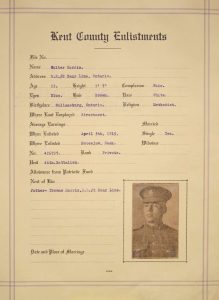 Kent County Enlistments
File No.
Name Walter Harris.
Address R.R.#2 Bear Line, Ontario.
Age Height 5' 5" Complexion Fair.
Eyes Blue. Hair Brown. Race White.
Birthplace Ontario. Religion Methodist.
Where Last Employed
Average Earnings Married
When Enlisted April 9th, 1915. Single Yes.
Where Enlisted Widower
No. Rank Private.
Unit
Allowance from Patriotic Fund
Next of Kin
Father- Thomas Harris, R.R.#2 Bear Line.
Date and Place of Marriage